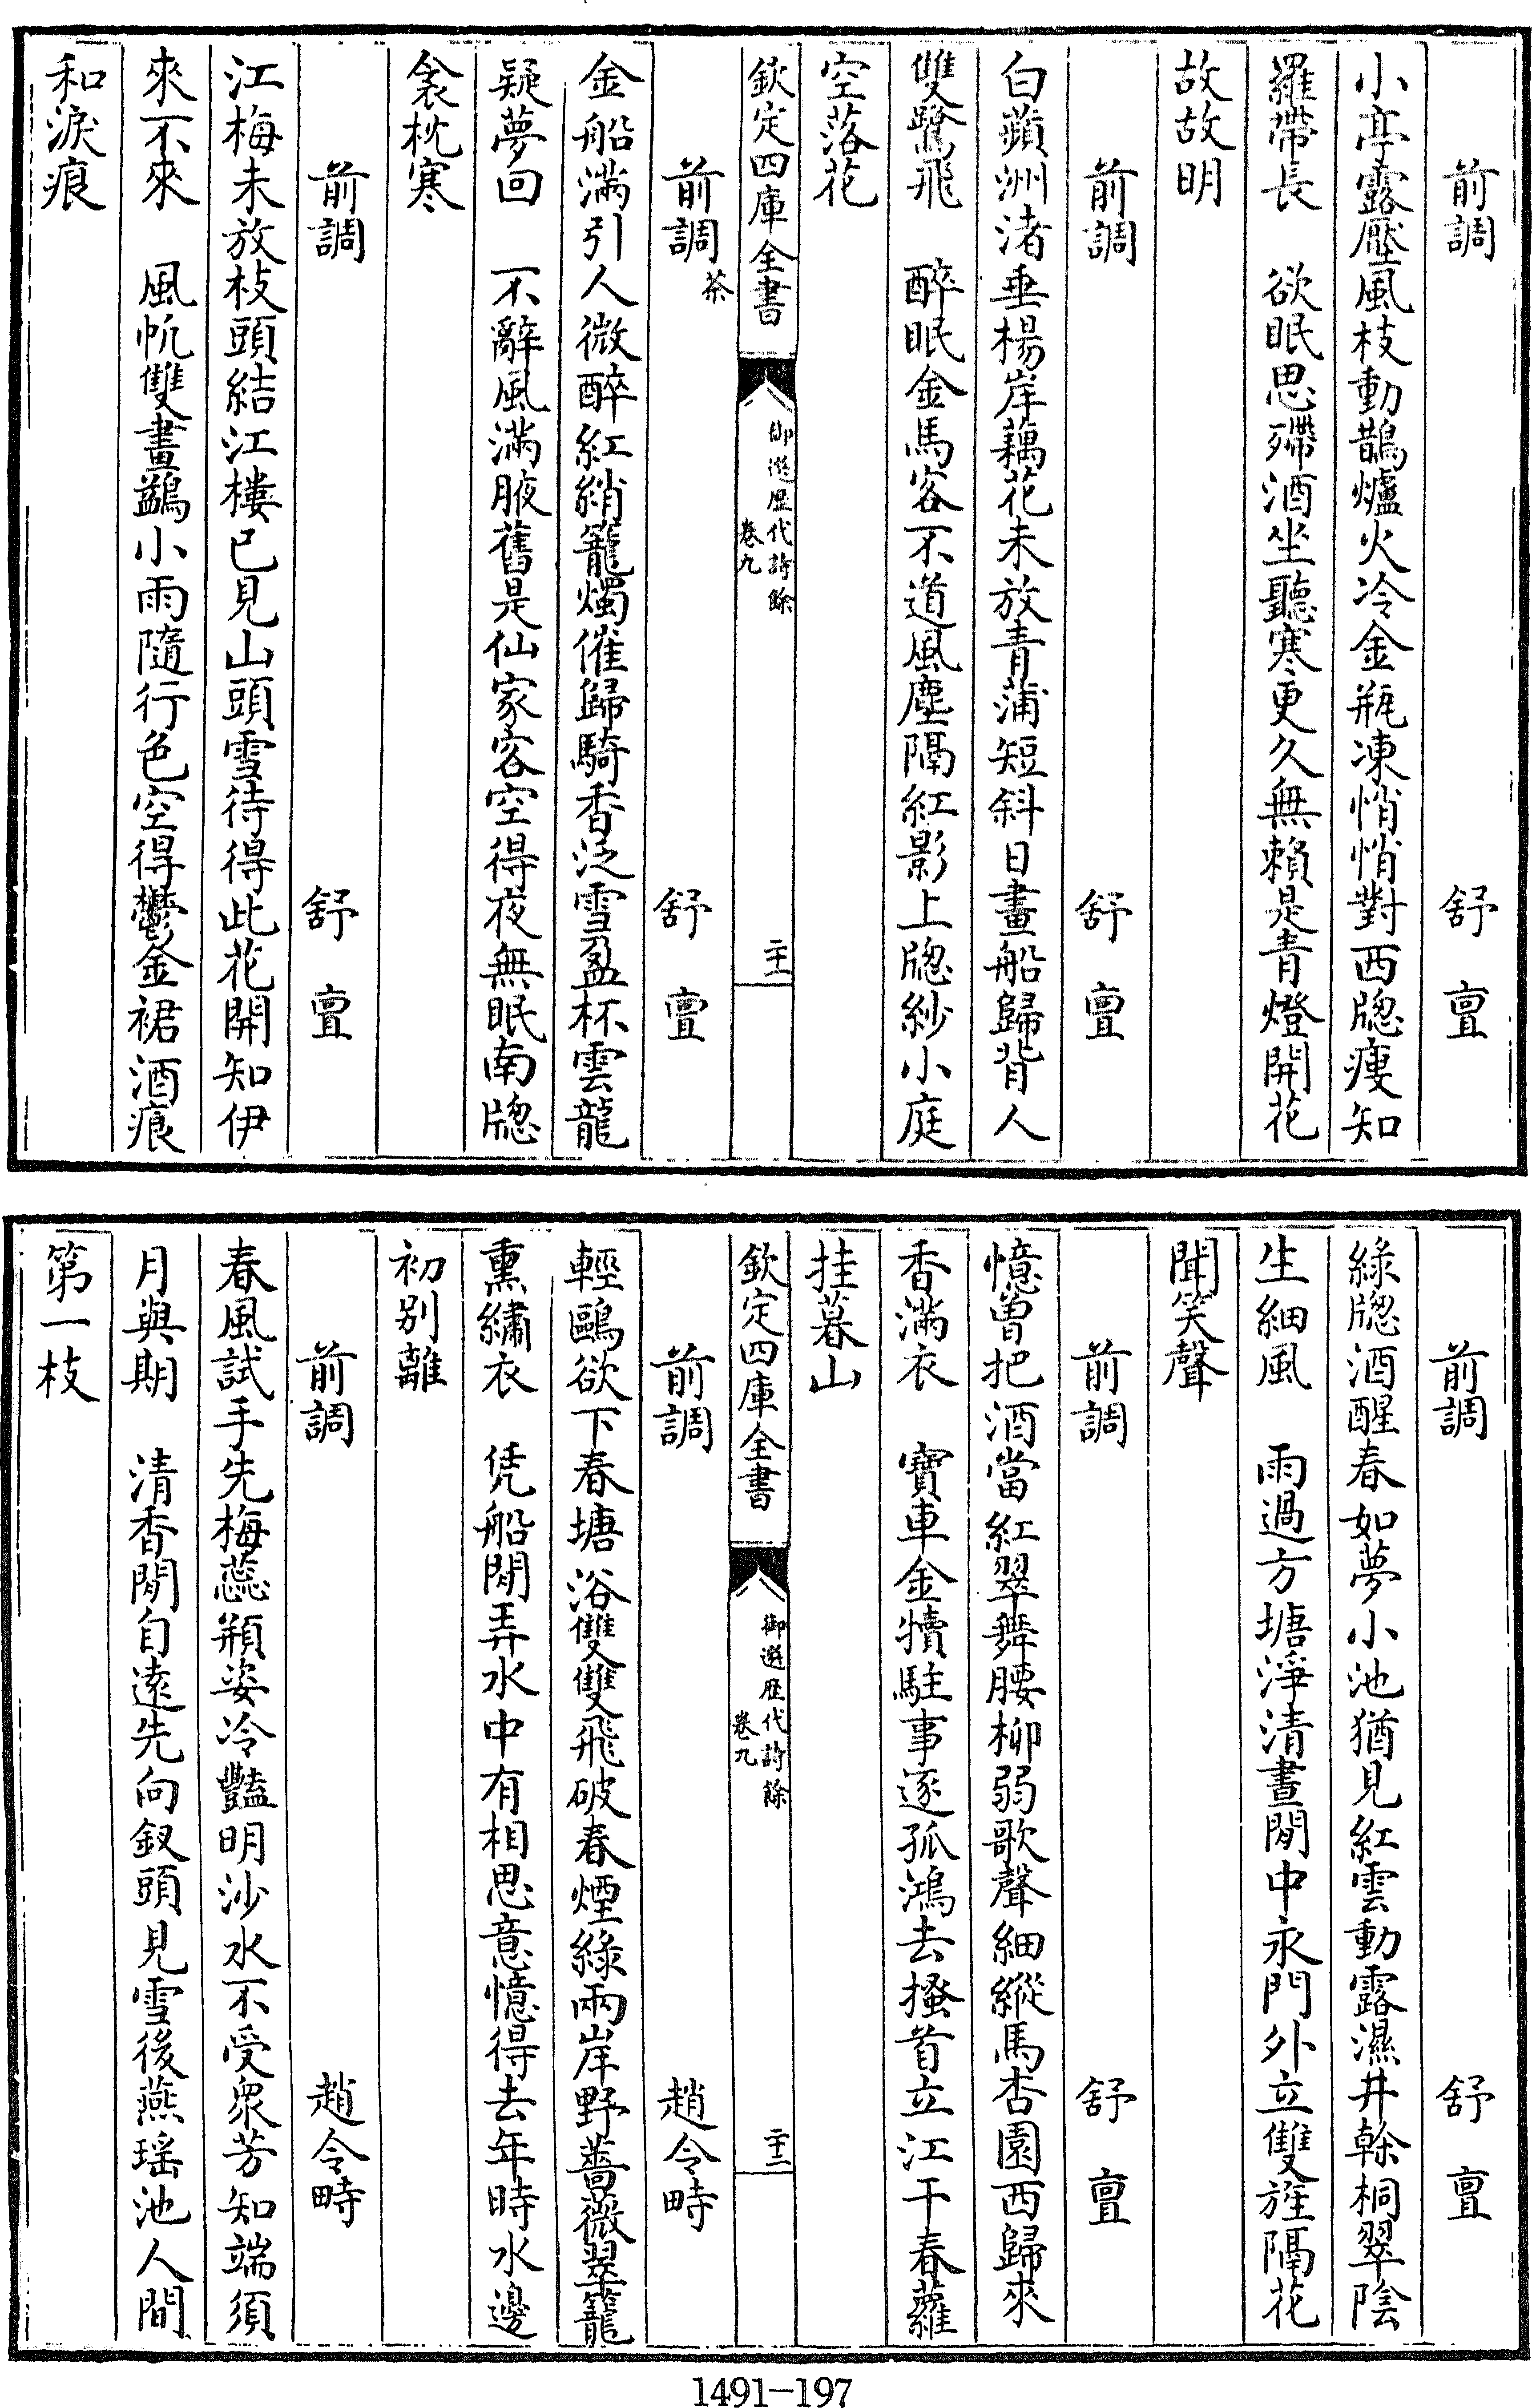 前調　舒亶
小亭露壓風枝動鵲爐火冷金瓶凍悄悄對西牕瘦知
羅帶長　欲眠思殢酒坐聽寒更久無賴是青燈開花
故故明
前調　舒亶
白蘋洲渚垂楊岸藕花未放青蒲短斜日畫船歸背人
雙鷺飛　醉眠金馬客不道風塵隔紅影上牕紗小庭
空落花
欽定四庫全書　御選歷代詩餘　卷九　二十一
前調茶　舒亶
金船滿引人微醉紅綃籠燭催歸騎香泛雪盈杯雲龍
疑夢回　不辭風滿腋舊是仙家客空得夜無眠南牕
衾枕寒
前調　舒亶
江梅未放枝頭結江樓已見山頭雪待得此花開知伊
來不來　風帆雙畫鷁小雨隨行色空得鬱金裙酒痕
和淚痕
前調　舒亶
綠牕酒醒春如夢小池猶見紅雲動露濕井榦桐翠陰
生細風　雨過方塘淨清晝閒中永門外立雙旌隔花
聞笑聲
前調　舒亶
憶曾把酒當紅翠舞腰柳弱歌聲細縱馬杏園西歸來
香滿衣　寶車金犢駐事逐孤鴻去搔首立江干春蘿
挂暮山
欽定四庫全書　御選歷代詩餘　卷九　二十二
前調　趙令畤
輕鷗欲下春塘浴雙雙飛破春煙綠兩岸野薔薇翠籠
熏繡衣　凭船閒弄水中有相思意憶得去年時水邊
初別離
前調　趙令畤
春風試手先梅蕊頩姿冷豔明沙水不受衆芳知端須
月與期　清香閒自遠先向釵頭見雪後燕瑤池人間
第一枝
1491-197